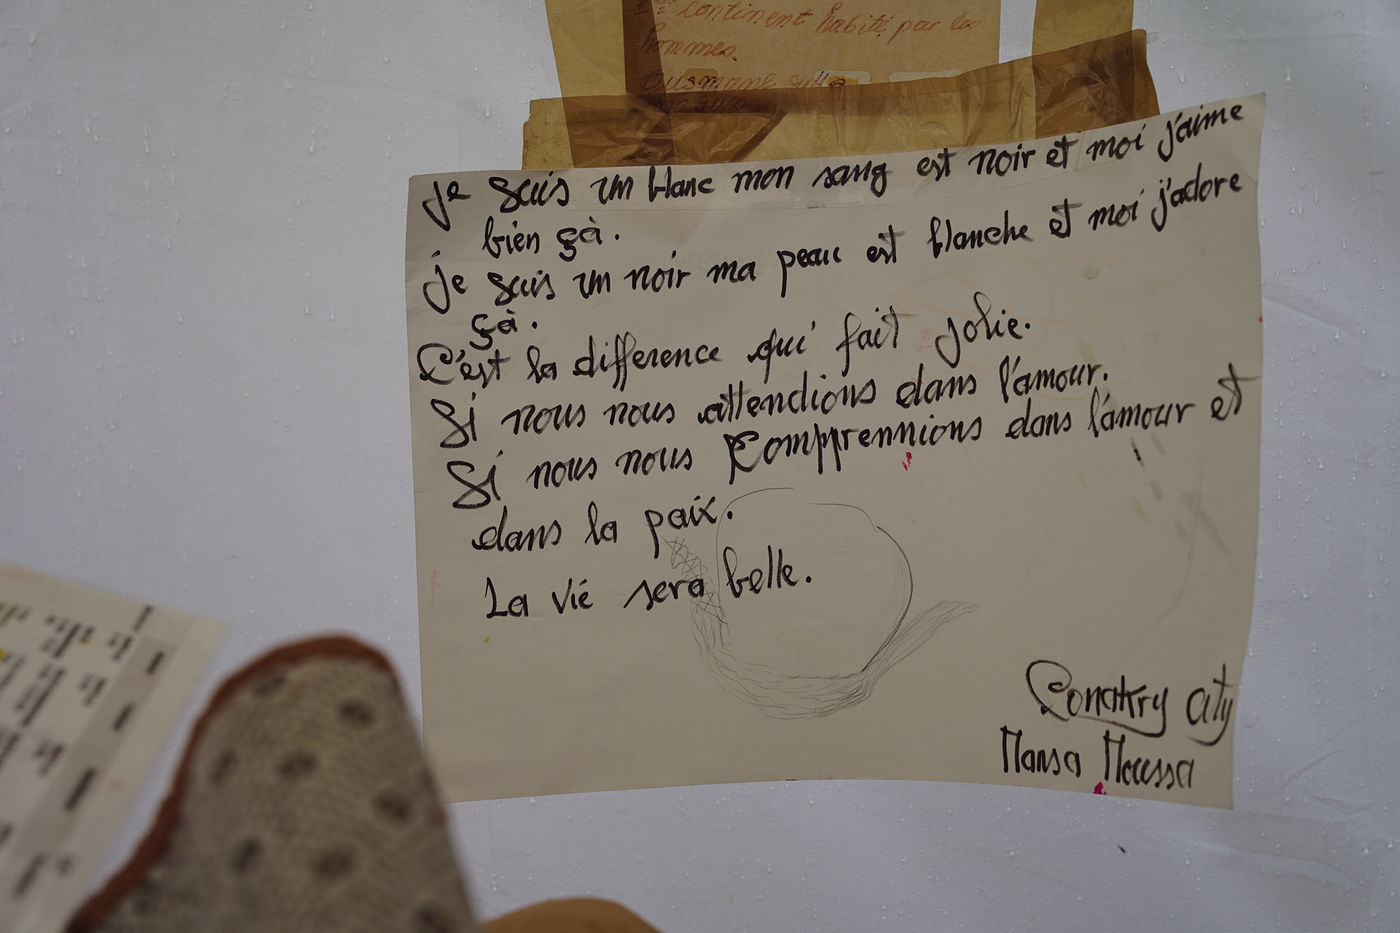 continent habité par les
hommes.
ousmane
je suis un blanc mon sang est noir et moi j'aime
bien çà.
je suis un noir ma peau est blanche et moi j'adore
çà.
C'est la difference qui fait jolie.
Si nous nous attendions dans l'amour.
Si nous nous Comprennions dans l'amour et
dans la paix.
La vié sera belle.
Conakry City
Mansa Moussa